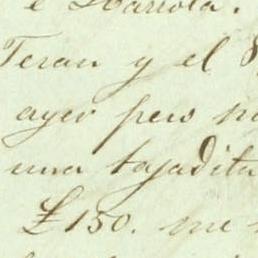 e Ibarrola.
Teran y el
ayer pero
una tajadita
£150. me